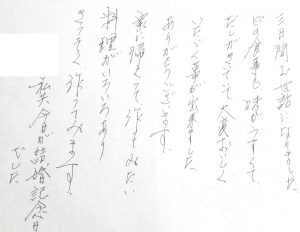 三日間お世話になりました
どの食事も味がうすくて
だしがきいて大変おいしく
いただく事が出来ました
ありがとうございます。
家に帰くて作ってみたい
料理がいろいろあり
さっそく作ってみます。
私共今日が結婚記念日
でした